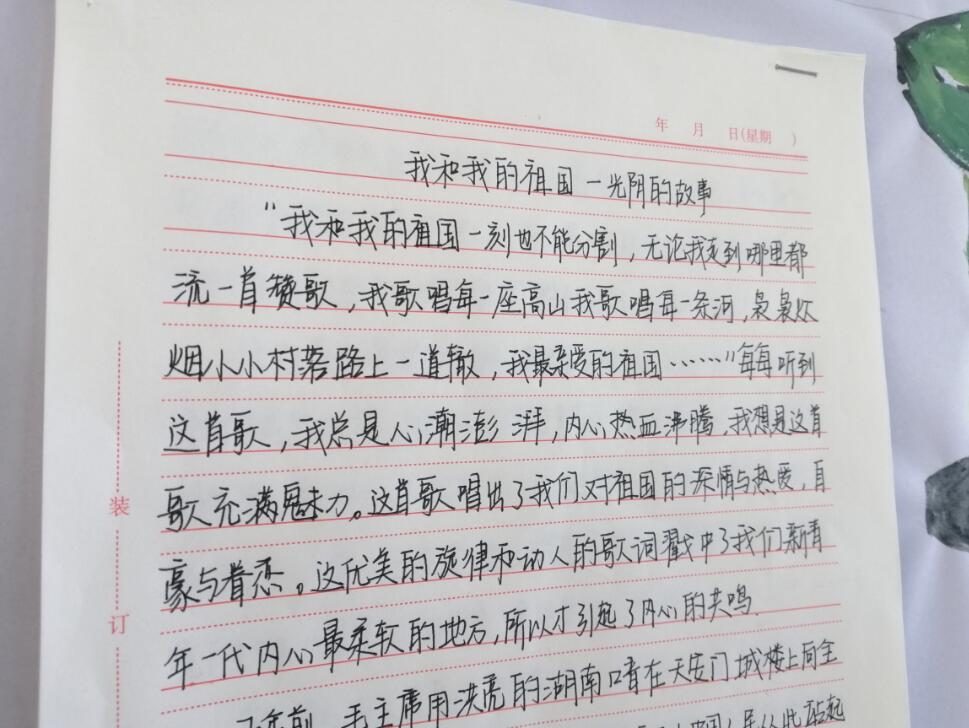 年 月 日(星期 )
我和我的祖国一光阴的故事
"我和我的祖国一刻也不能分割，无论我走到哪里都
流一首赞歌，我歌唱每一座高山我歌唱每一条河，袅袅炊
烟小小村落路上一道辙，我最亲爱的祖国……"每每听到
这首歌，我总是人心潮澎湃，内心热血沸腾，我想是这首
歌充满魅力。这首歌唱出了我们对祖国的深情与热爱，自
豪与眷恋。这优美的旋律和动人的歌词戳中了我们新青
年一代内心最柔软的地方，所以才引起了内心的共鸣.
年前，毛主席用洪亮的湖南口音在天安门城楼上向全
中国人民从此站起
装
订